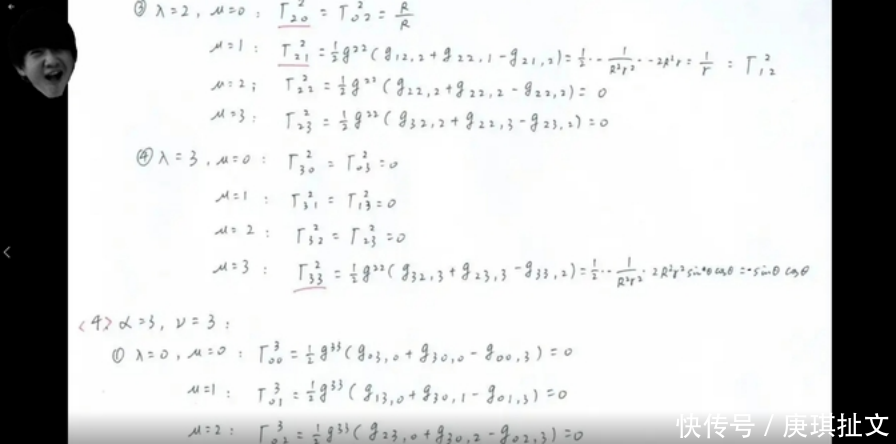 ③ λ=2, μ=0: Γ²₂₀ = Γ²₀₂ = Ṙ/R
μ=1: Γ²₂₁ = ½g²²(g₁₂,₂+g₂₂,₁-g₂₁,₂) = ½·-1/R²r²·-2R²r = 1/r = Γ²₁₂
μ=2; Γ²₂₂ = ½g²²(g₂₂,₂+g₂₂,₂-g₂₂,₂) = 0
μ=3: Γ²₂₃ = ½g²²(g₃₂,₂+g₂₂,₃-g₂₃,₂) = 0
④ λ=3, μ=0: Γ²₃₀ = Γ²₀₃ = 0
μ=1: Γ²₃₁ = Γ²₁₃ = 0
μ=2: Γ²₃₂ = Γ²₂₃ = 0
μ=3: Γ²₃₃ = ½g²²(g₃₂,₃+g₂₃,₃-g₃₃,₂) = ½·-1/R²r²·2R²r²sinθcosθ = -sinθcosθ
<4> α=3, ν=3:
① λ=0, μ=0: Γ³₀₀ = ½g³³(g₀₃,₀+g₃₀,₀-g₀₀,₃) = 0
μ=1: Γ³₀₁ = ½g³³(g₁₃,₀+g₃₀,₁-g₀₁,₃) = 0
μ=2: Γ³₀₂ = ½g³³(g₂₃,₀+g₃₀,₂-g₀₂,₃) = 0
快传号 / 庚琪扯文